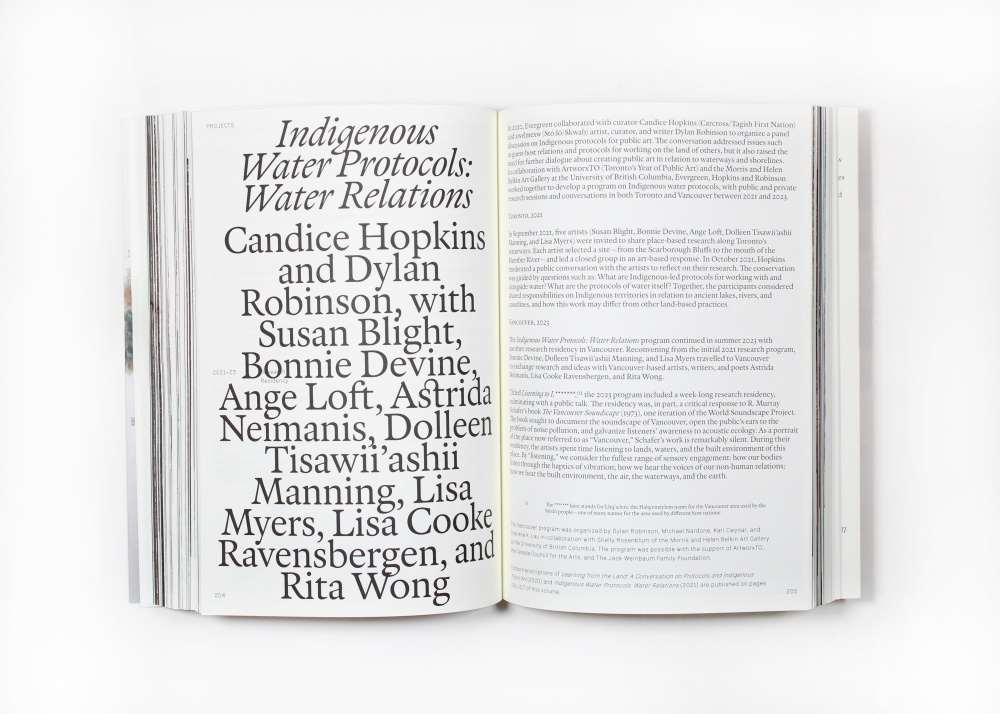 PROJECTS
Indigenous
Water Protocols:
Water Relations
Candice Hopkins
and Dylan
Robinson, with
Susan Blight,
Bonnie Devine,
2021–23
Residency
Ange Loft, Astrida
Neimanis, Dolleen
Tisawii'ashii
Manning, Lisa
Myers, Lisa Cooke
Ravensbergen, and
Rita Wong
204
In 2020, Evergreen collaborated with curator Candice Hopkins (Carcross/Tagish First Nation)
and xwélmexw (Stó:lō/Skwah) artist, curator, and writer Dylan Robinson to organize a panel
discussion on Indigenous protocols for public art. The conversation addressed issues such
as guest-host relations and protocols for working on the land of others, but it also raised the
need for further dialogue about creating public art in relation to waterways and shorelines.
In collaboration with ArtworxTO (Toronto's Year of Public Art) and the Morris and Helen
Belkin Art Gallery at the University of British Columbia, Evergreen, Hopkins and Robinson
worked together to develop a program on Indigenous water protocols, with public and private
research sessions and conversations in both Toronto and Vancouver between 2021 and 2023.
TORONTO, 2021
In September 2021, five artists (Susan Blight, Bonnie Devine, Ange Loft, Dolleen Tisawii'ashii
Manning, and Lisa Myers) were invited to share place-based research along Toronto's
waterways. Each artist selected a site—from the Scarborough Bluffs to the mouth of the
Humber River—and led a closed group in an art-based response. In October 2021, Hopkins
moderated a public conversation with the artists to reflect on their research. The conservation
was guided by questions such as: What are Indigenous-led protocols for working with and
alongside water? What are the protocols of water itself? Together, the participants considered
shared responsibilities on Indigenous territories in relation to ancient lakes, rivers, and
coastlines, and how this work may differ from other land-based practices.
VANCOUVER, 2023
The Indigenous Water Protocols: Water Relations program continued in summer 2023 with
another research residency in Vancouver. Reconvening from the initial 2021 research program,
Bonnie Devine, Dolleen Tisawii'ashii Manning, and Lisa Myers travelled to Vancouver
to exchange research and ideas with Vancouver-based artists, writers, and poets Astrida
Neimanis, Lisa Cooke Ravensbergen, and Rita Wong.
Titled Listening to L*******, the 2023 program included a week-long research residency,
culminating with a public talk. The residency was, in part, a critical response to R. Murray
Schafer's book The Vancouver Soundscape (1973), one iteration of the World Soundscape Project.
The book sought to document the soundscape of Vancouver, open the public's ears to the
problem of noise pollution, and galvanize listeners' awareness to acoustic ecology. As a portrait
of the place now referred to as "Vancouver," Schafer's work is remarkably silent. During their
residency, the artists spent time listening to lands, waters, and the built environment of this
place. By "listening," we consider the fullest range of sensory engagement: how our bodies
listen through the haptics of vibration; how we hear the voices of our non-human relations;
how we hear the built environment, the air, the waterways, and the earth.
The ******* here stands for the Halq'eméylem name for the Vancouver area used by the
Stó:lō people—one of many names for the area used by different host nations.
The Vancouver program was organized by Dylan Robinson, Michael Nardone, Kari Cwynar, and
in collaboration with Shelly Rosenblum of the Morris and Helen Belkin Art Gallery
at the University of British Columbia. The program was possible with the support of ArtworxTO,
the Canada Council for the Arts, and The Jack Weinbaum Family Foundation.
Edited transcriptions of Learning from the Land: A Conversation on Protocols and Indigenous
Public Art (2020) and Indigenous Water Protocols: Water Relations (2021) are published on pages
of this volume.
205